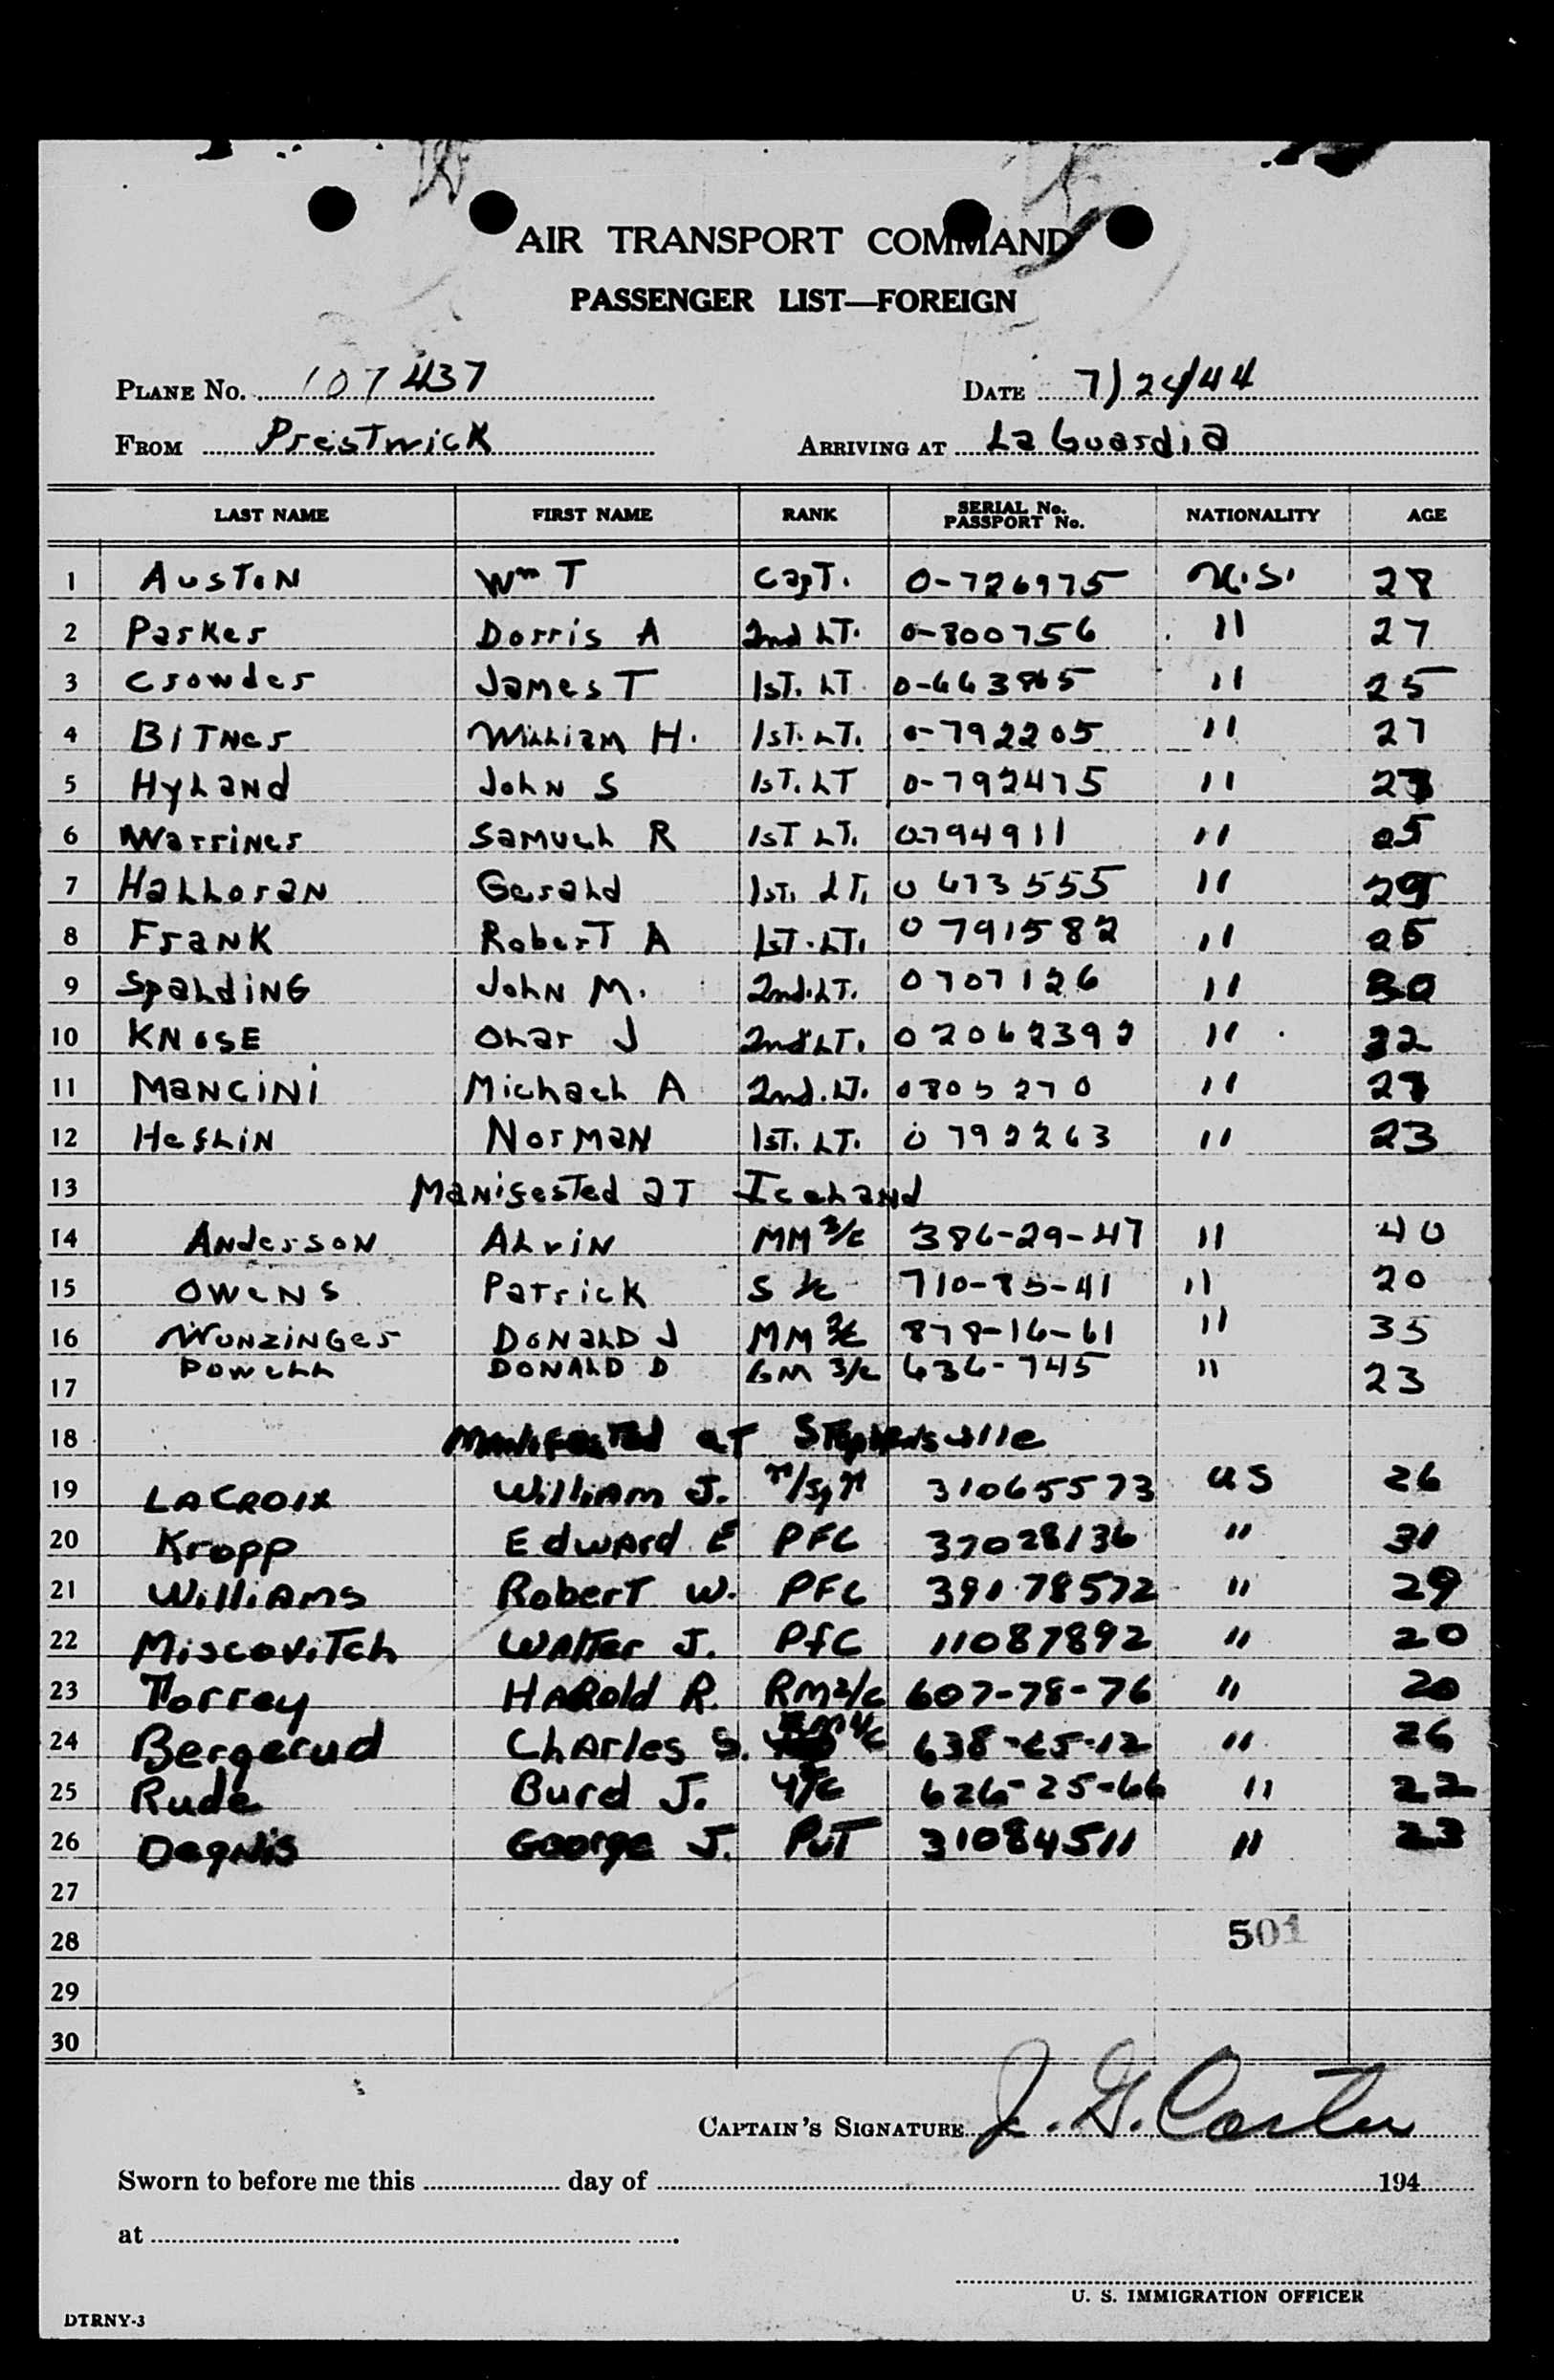 AIR TRANSPORT COMMAND
PASSENGER LIST—FOREIGN
PLANE No. 107437 DATE 7/24/44
FROM Prestwick ARRIVING AT La Guardia
LAST NAME FIRST NAME RANK SERIAL No. PASSPORT No. NATIONALITY AGE
1 Auston Wm T Capt. 0-726975 U.S. 28
2 Parker Dorris A 2nd LT. 0-800756 " 27
3 Crowder James T 1st. LT 0-663865 " 25
4 Bitner William H. 1st. LT. 0-792205 " 27
5 Hyland John S 1st. LT 0-792475 "
6 Warriner Samuel R 1st LT. 0794911 " 25
7 Halloran Gerald 1st. LT. 0 673555 " 29
8 Frank Robert A 1st. LT. 0 791582 " 25
9 Spalding John M. 2nd. LT. 0707126 "
10 Knose Olar J 2nd LT. 02062392 " 22
11 Mancini Michael A 2nd. LT. 0805270 "
12 Heflin Norman 1st. LT. 0 792263 " 23
13 Manifested at Iceland
14 Anderson Alvin MM 3/c 386-29-47 " 40
15 Owens Patrick S 710-85-41 " 20
16 Wunzinger Donald J MM 878-16-61 " 35
17 Powell Donald D GM 3/c 636-745 " 23
18 Manifested at Stephensville
19 LaCroix William J. 31065573 US 26
20 Kropp Edward E PFC 37028136 " 31
21 Williams Robert W. PFC 39178572 " 29
22 Miscovitch Walter J. Pfc 11087892 " 20
23 Torrey Harold R. RM2/c 607-78-76 " 20
24 Bergerud Charles S. 638-65-12 " 26
25 Rude Burd J. 626-25-66 " 22
26 George J. Pvt 31084511 " 23
27
28 501
29
30
CAPTAIN'S SIGNATURE J. G. Carter
Sworn to before me this day of 194
at
U. S. IMMIGRATION OFFICER
DTRNY-3